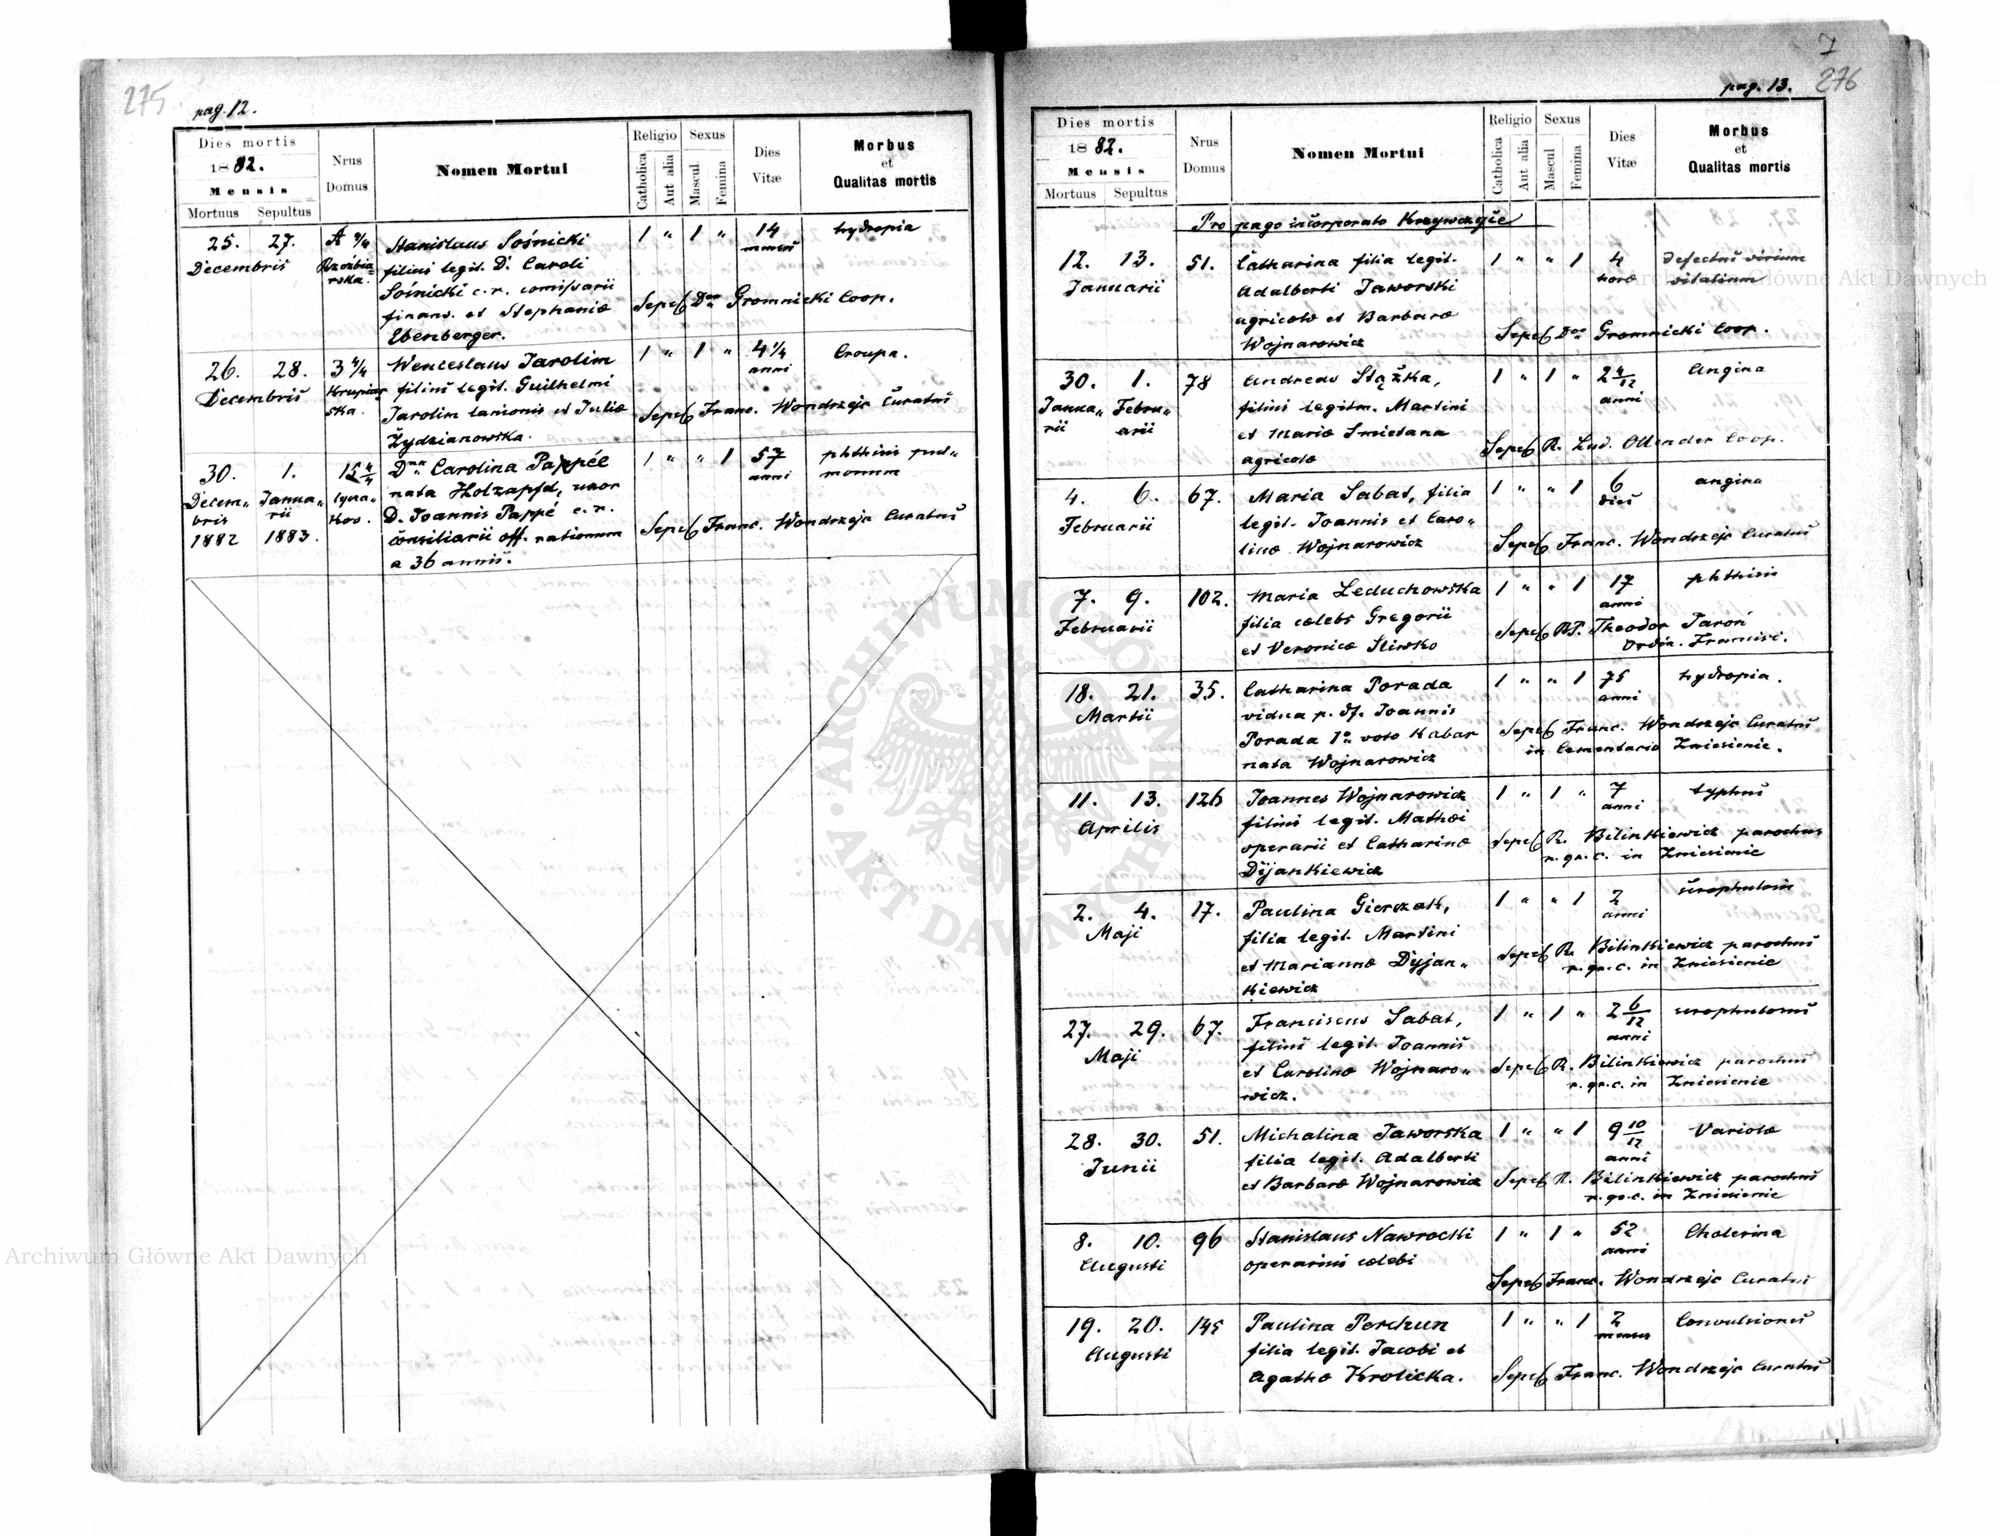 275
pag. 12.
Dies mortis
1882.
Mensis
Mortuus Sepultus
Nrus Domus
Nomen Mortui
Religio
Catholica
Aut alia
Sexus
Mascul
Femina
Dies Vitæ
Morbus
et
Qualitas mortis
25. 27. Stanislaus Sośnicki 1 " 1 " 14 hydropia
Decembris filius legit. D. Caroli mensis
Sośnicki c. r. comissarii
finanс. et Stephaniæ Gromnicki Coop.
Ebenberger.
26. 28. 3 4/4 Wenceslaus Jarolim 1 " 1 " 4 1/4 Croupa.
Decembris Krupiarska. filius legit. Guilhelmi anni
Jarolim lanionis et Juliæ Franc. Wondrzejc Curatus
Żydzianowska.
30. 1. 15 4/4 Dna Carolina Pappée 1 " " 1 57 phthisis pulmonum
Decembris 1882 Januarii 1883. Łyczakov. nata Holzapfel, uxor anni
D. Joannis Pappé c. r. Franc. Wondrzejc Curatus
consiliarii off. rationum
a 36 annis.
7
276
pag. 13.
Dies mortis
1882.
Mensis
Mortuus Sepultus
Nrus Domus
Nomen Mortui
Religio
Catholica
Aut alia
Sexus
Mascul
Femina
Dies Vitæ
Morbus
et
Qualitas mortis
Pro pago incorporato Krzywczyce
12. 13. 51. Catharina filia legit. 1 " " 1 4 Defectus virium
Januarii Adalberti Jaworski horæ vitalium
agricolæ et Barbaræ
Wojnarowicz Gromnicki Coop.
30. 1. 78 Andreas Stążka, 1 " 1 " 2 4/12 Angina
Januarii Februarii filius legitm. Martini anni
et Mariæ Smietana
agricolæ R. Lud. Ollender Coop.
4. 6. 67. Maria Sabat, filia 1 " " 1 6 angina
Februarii legit. Joannis et Caro- dies
linæ Wojnarowicz Franc. Wondrzejc Curatus
7. 9. 102. Maria Leduchowska 1 " " 1 17 phthisis
Februarii filia cælebs Gregorii anni
et Veronicæ Sliwko RP. Theodor Taroń
Ordin. Francisc.
18. 21. 35. Catharina Porada 1 " " 1 75 hydropia.
Martii vidua p. df. Joannis anni
Porada 1o voto Kabar Franc. Wondrzejc Curatus
nata Wojnarowicz in Cementario Zniesienie.
11. 13. 126 Joannes Wojnarowicz 1 " 1 " 7 typhus
Aprilis filius legit. Mathæi anni
operarii et Catharinæ R. Bilinkiewicz parochus
Dijankiewicz r. gr. c. in Zniesienie
2. 4. 17. Paulina Gierszak, 1 " " 1 2 scrophulosis
Maji filia legit. Martini anni
et Mariannæ Dyjan- R. Bilinkiewicz parochus
kiewicz r. gr. c. in Zniesienie
27. 29. 67. Franciscus Sabat, 1 " 1 " 2 6/12 scrophulosus
Maji filius legit. Joannis anni
et Carolinæ Wojnaro- R. Bilinkiewicz parochus
wicz. r. gr. c. in Zniesienie
28. 30. 51. Michalina Jaworska 1 " " 1 9 10/12 Variolæ
Junii filia legit. Adalberti anni
et Barbaræ Wojnarowicz R. Bilinkiewicz parochus
r. gr. c. in Zniesienie
8. 10. 96 Stanislaus Nawrocki 1 " 1 " 52 Cholerina
Augusti operarius cælebs anni
Franc. Wondrzejc Curatus
19. 20. 145 Paulina Perchun 1 " " 1 2 Convulsiones
Augusti filia legit. Jacobi et menses
Agathæ Krolicka. Franc. Wondrzejc Curatus
ARCHIWUM GŁÓWNE AKT DAWNYCH
Archiwum Główne Akt Dawnych
Archiwum Główne Akt Dawnych